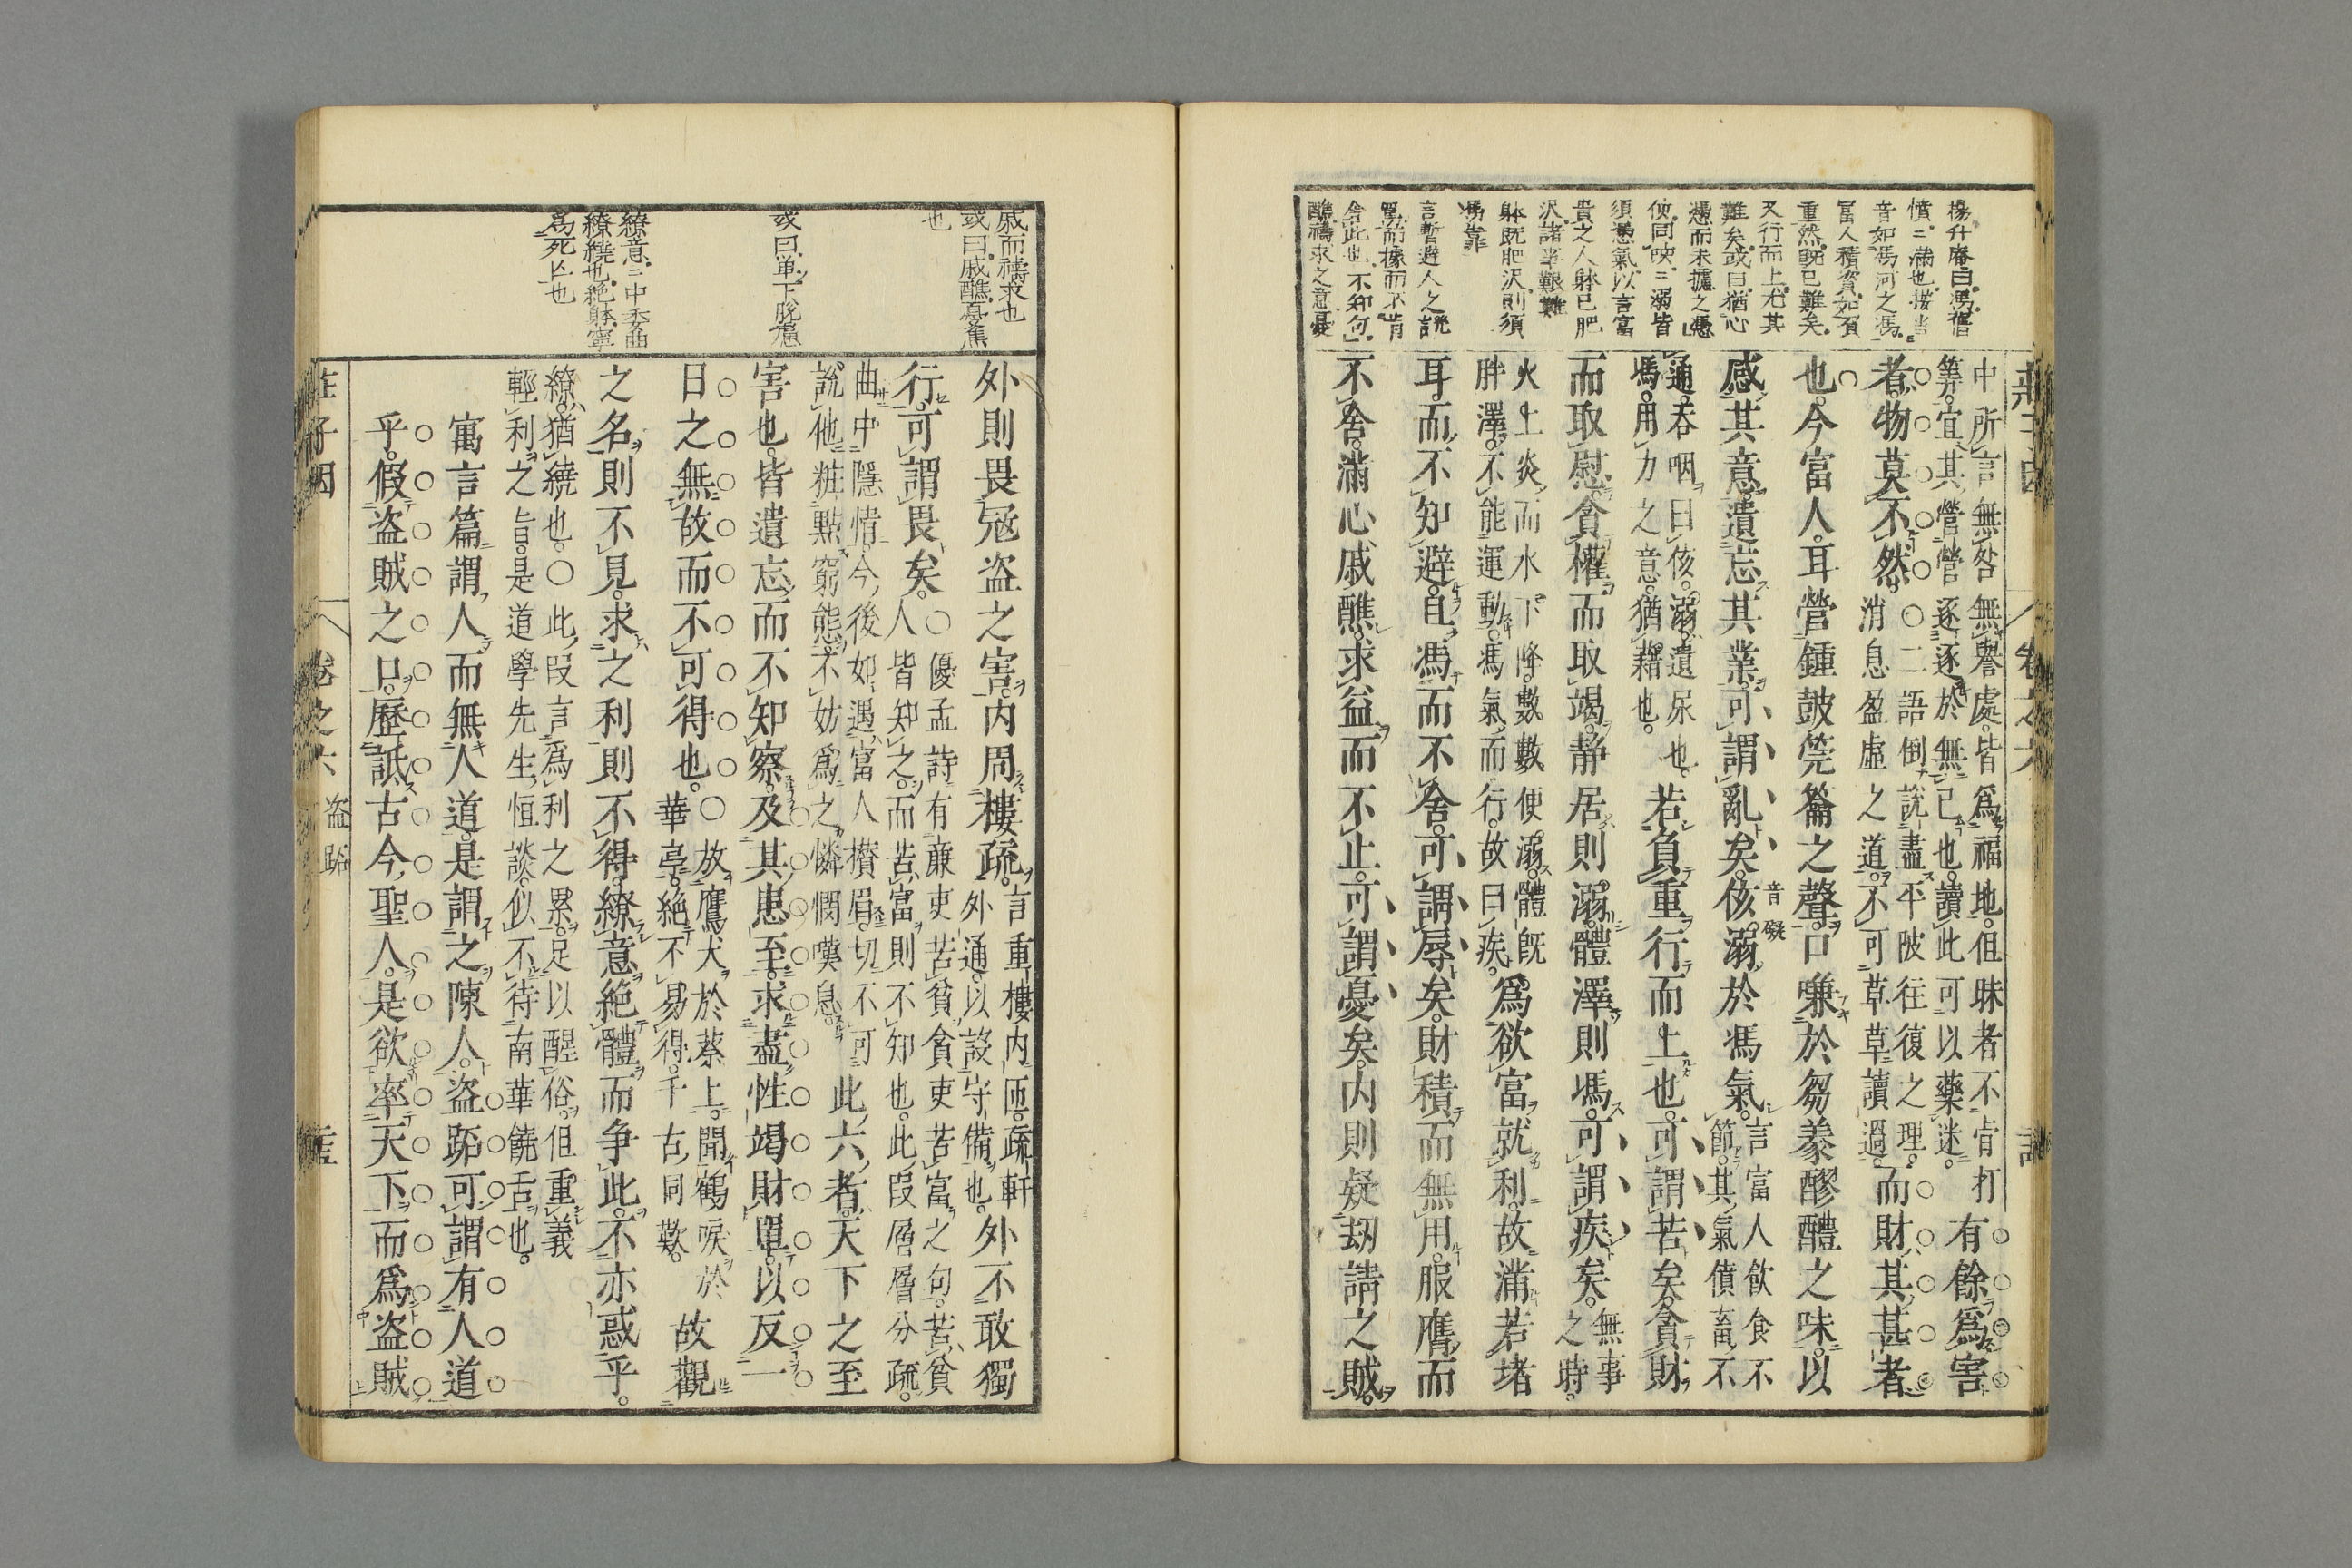 中所言無咎無譽處皆爲福地但昧者不肯打
筭宜其營營逐逐於無已也讀此可以藥迷
有餘爲害
者物莫不然
○二語倒說盡平陂往復之理
消息盈虛之道不可草草讀過
而財其甚者
也今富人耳營鍾鼓筦籥之聲口嗛於芻豢醪醴之味以
感其意遺忘其業可謂亂矣侅溺於馮氣
音礙
言富人飲食不
節其氣僨畜不
通吞咽曰侅溺遺尿也
馮用力之意猶藉也
若負重行而上也可謂苦矣貪財
而取慰貪權而取竭靜居則溺體澤則馮可謂疾矣
無事
之時
火上炎而水下降數數便溺體既
胖澤不能運動馮氣而行故曰疾
爲欲富就利故滿若堵
耳而不知避且馮而不舍可謂辱矣財積而無用服膺而
不舍滿心戚醮求益而不止可謂憂矣內則疑刦請之賊
楊升庵曰馮
憤二滿也
音如馮河之馮
富人積資如負
重然既已難矣
又行而上尤其
難矣或曰猶心
馮而未攄之馮
侅同咉二溺皆
須憑氣以言富
貴之人躰已肥
沢諸事艱難
躰既肥沢則須
馮靠
言暫避人之說
而據而不肯
舍此也不知何
醮禱求之意憂
外則畏冦盜之害內周樓疏
言重樓內匝疏軒
外通以設守備也
外不敢獨
行可謂畏矣
○優孟詩有廉吏苦貧貪吏苦富之句苦貧
人皆知之而苦富則不知也此段層層分疏
曲中隱情今後如遇富人攅眉切不可
說他粧點窮態不妨爲之憐憫嘆息
此六者天下之至
害也皆遺忘而不知察及其患至求盡性竭財單以反一
日之無故而不可得也
○放鷹犬於蔡上聞鶴唳於
華亭絕不易得千古同歎
故觀
之名則不見求之利則不得繚意絕體而争此不亦惑乎
繚猶繞也○此段言爲利之累足以醒俗但重義
輕利之旨是道學先生恒談似不待南華饒舌也
寓言篇謂人而無人道是謂之陳人盜跖可謂有人道
乎假盜賊之口歷詆古今聖人是欲率天下而爲盜賊
戚而禱求也
或曰戚醮憂雧
也
或曰単下脫慮
繚意二中委曲
繚繞也絕躰寧
為死亾也
莊子因
卷之六
盜跖